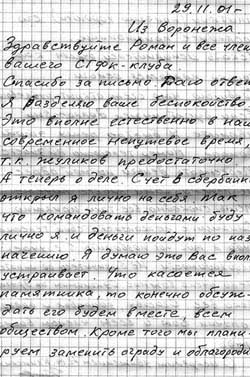 29.11.01г.
Из Воронежа
Здравствуйте Роман и все член
вашего СТФК-клуба
Спасибо за письмо. Даю ответ
Я разделяю ваше беспокойство
Это вполне естественно в наш
современное непутевое время,
т.к. жуликов предостаточно
А теперь о деле. Счет в сбербанк
открыл я лично на себя. Так
что командовать деньгами буду
лично я и деньги пойдут по наз
начению. Я думаю это Вас впол
устраивает. Что касается
памятника, то конечно обсуж
дать его будем вместе, всем
обществом. Кроме того мы плани
руем заменить ограду и облагород